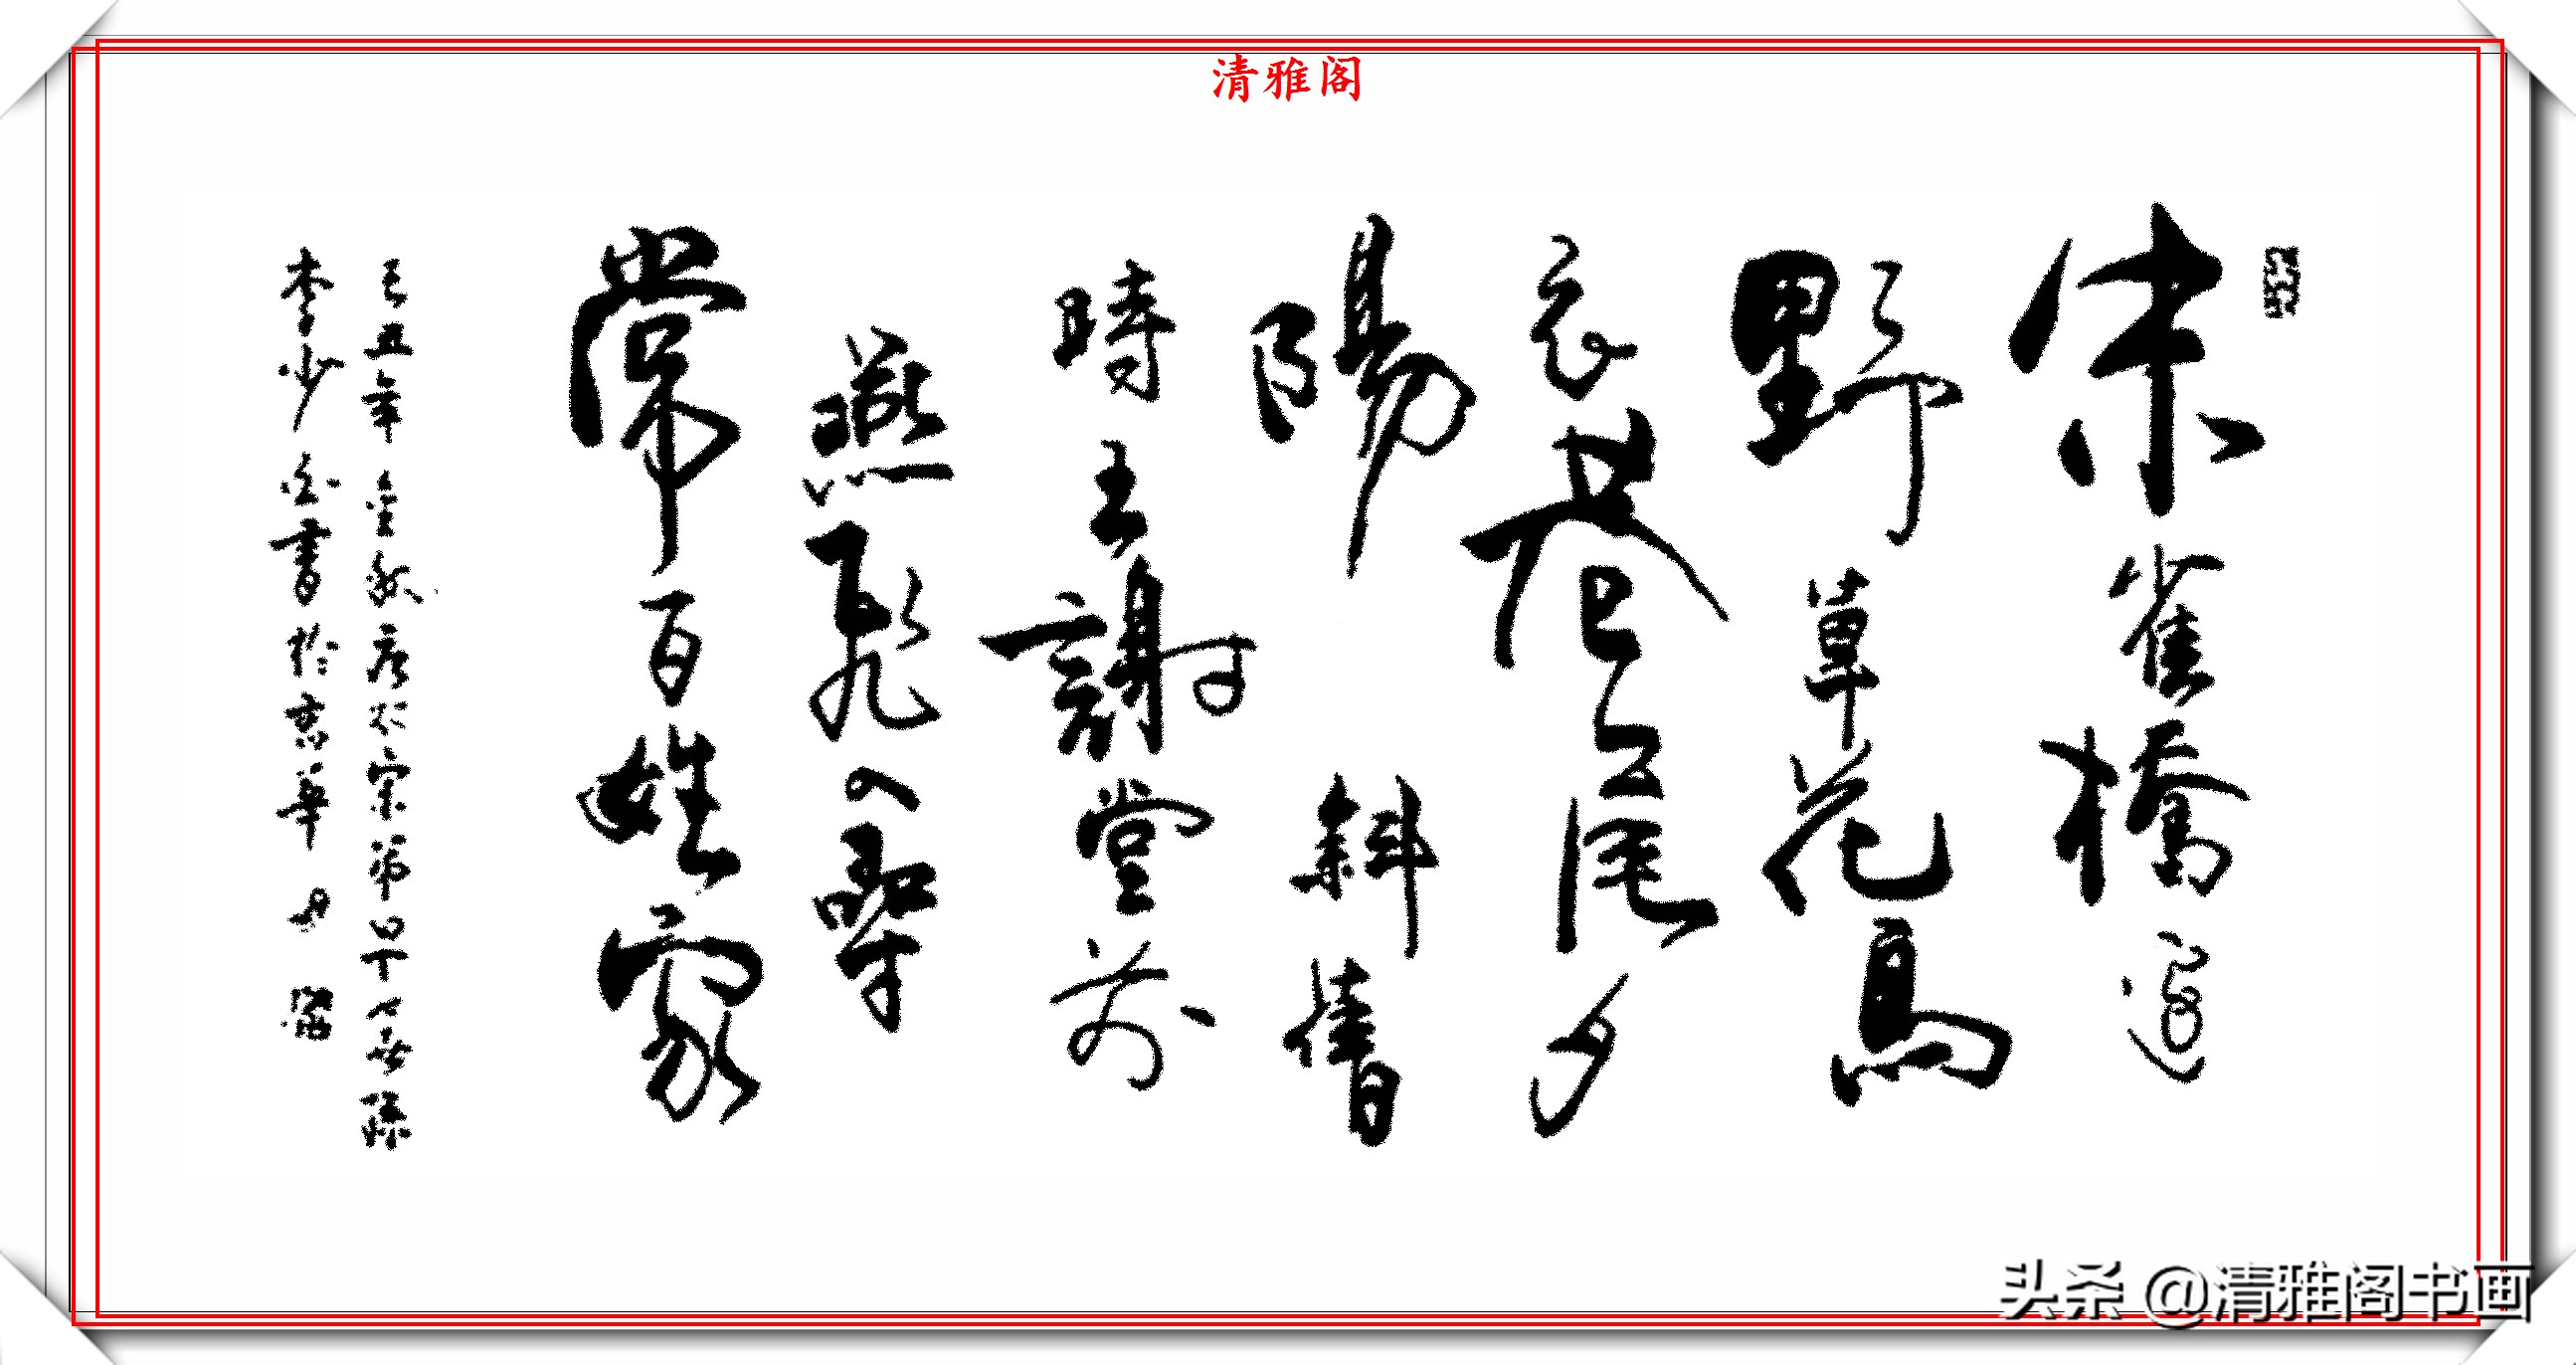 清雅阁
朱雀橋邊
野草花烏
衣巷口夕
陽斜舊
時王謝堂前
燕飛入尋
常百姓家
己丑年金秋唐太宗第四十七世孫
李少白書於京華
头条 @清雅阁书画